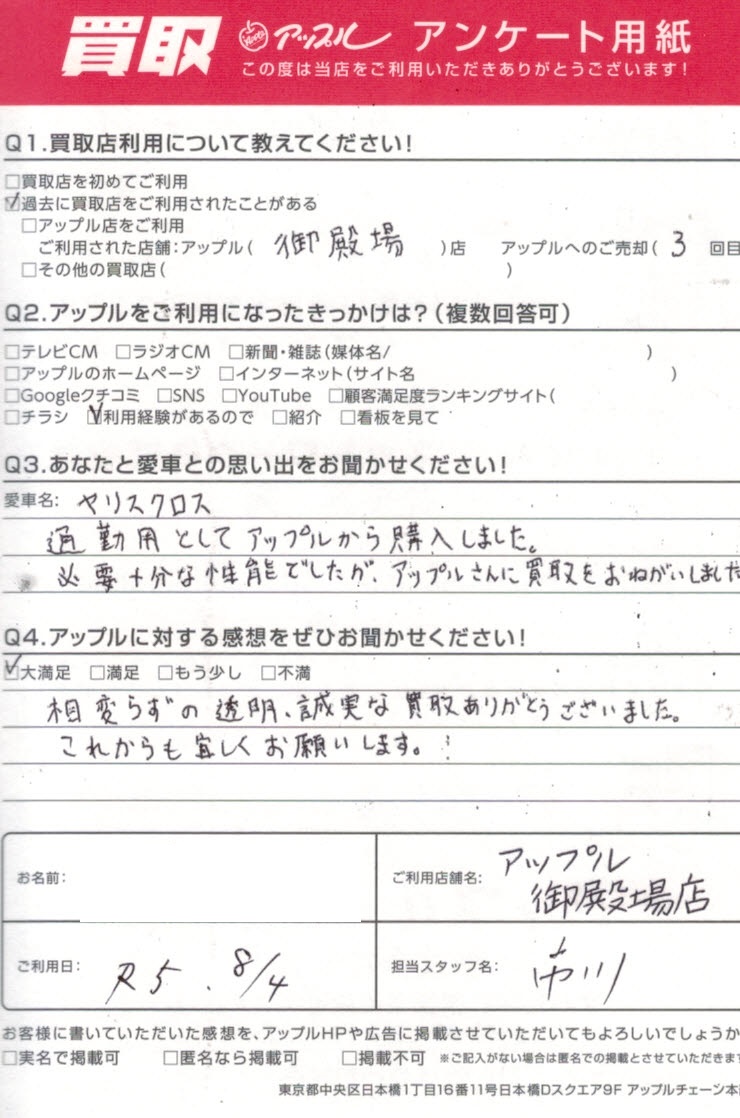 買取 アップル アンケート用紙
この度は当店をご利用いただきありがとうございます!
Q1.買取店利用について教えてください!
□買取店を初めてご利用
☑過去に買取店をご利用されたことがある
□アップル店をご利用
ご利用された店舗:アップル( 御殿場 )店 アップルへのご売却( 3 回目
□その他の買取店( )
Q2.アップルをご利用になったきっかけは?(複数回答可)
□テレビCM □ラジオCM □新聞・雑誌(媒体名/ )
□アップルのホームページ □インターネット(サイト名 )
□Googleクチコミ □SNS □YouTube □顧客満足度ランキングサイト(
□チラシ ☑利用経験があるので □紹介 □看板を見て
Q3.あなたと愛車との思い出をお聞かせください!
愛車名: ヤリスクロス
通勤用としてアップルから購入しました。
必要十分な性能でしたが、アップルさんに買取をおねがいしました
Q4.アップルに対する感想をぜひお聞かせください!
☑大満足 □満足 □もう少し □不満
相変らずの透明、誠実な買取ありがとうございました。
これからも宜しくお願いします。
お名前:
ご利用店舗名: アップル
御殿場店
ご利用日: R5. 8/4
担当スタッフ名: 市川
お客様に書いていただいた感想を、アップルHPや広告に掲載させていただいてもよろしいでしょうか
□実名で掲載可 □匿名なら掲載可 □掲載不可 ※ご記入がない場合は匿名での掲載とさせていただきます
東京都中央区日本橋1丁目16番11号日本橋Dスクエア9F アップルチェーン本